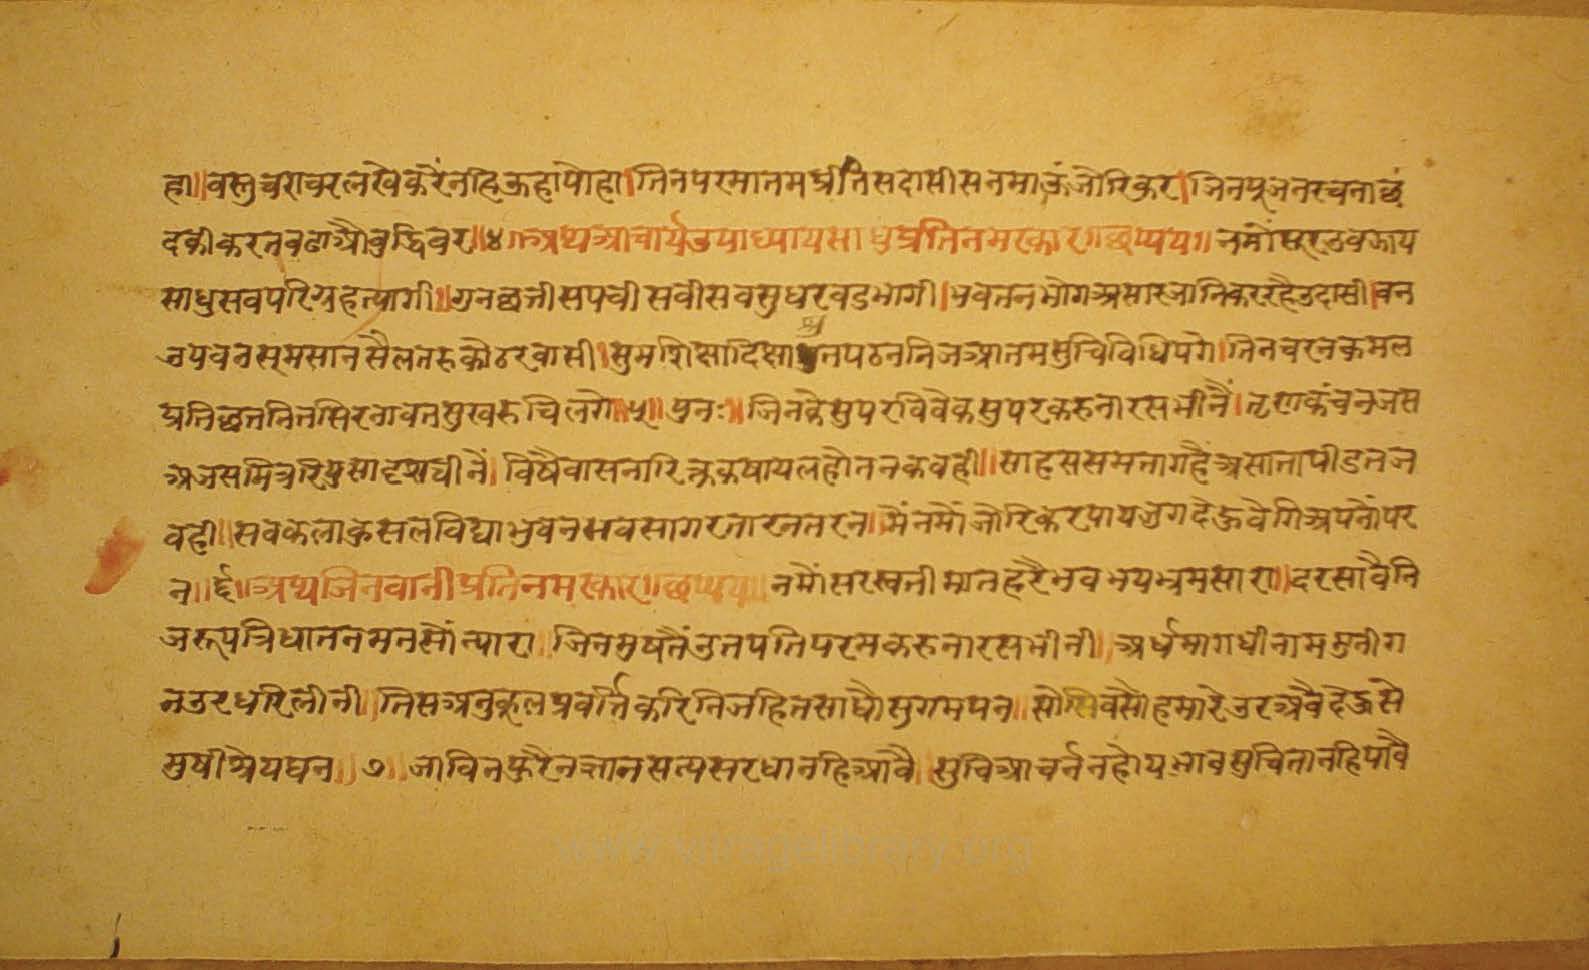 हा॥वस्तुचराचरलखेकरेंनहिऊहापोहा।तिनपरमातमप्रीतिसदासीसनमाऊंजोरिकर।जिनपूजनरचनाछं
दकीकरनवढाऔबुद्धिवर॥४॥अथआचार्यउपाध्यायसाधुप्रतिनमस्कार॥छप्पय॥नमौंसूरउवझाय
साधुसवपरिग्रहत्यागी॥गुनछत्तीसपचीसवीसवसुधरवडभागी।भवतनभोगअसारजानिकररहैउदासी।वन
उपवनसमसानसैलतरुकोठरवासी।सुमशिसादिसाधुनपठननिजआतमसुचिविधिपगे।तिनचरनकमल
प्रतिछत्तनितसिरनावतसुखरुचिलगे॥५॥पुनः॥जिनकेसुपरविवेकसुपरकरुनारसभीनैं।तृणकंचनजस
अजसमित्ररिपुसादृशचीनें।विषैवासनारिक्तकषायलहौतनकवही॥साहससमतागहैंअसातापीडतज
वही॥सवकलाकुसलविद्याभुवनभवसागरतारनतरन॥मैंनमौंजोरिकरपायजुगदेऊवेगिअपनौंपर
न॥६॥अथजिनवानीप्रतिनमस्कार॥छप्पय॥नमौंसरस्वतीमातहरैभवभयभ्रमसारा॥दरसावैनि
जरूपत्रिधातनमनसौंन्यारा॥जिनमुषतैंउतपतिपरमकरुनारसभीनी॥अर्धमागधीनाममुनीग
नउरधरिलीनी॥तिसअनुकूलप्रवर्त्तिकरिनिजहितसाधौसुगमपन॥सोसिवसौहमारेउरअवैदेऊसै
मुषीश्रेयघन॥७॥जाविनफुरैनज्ञानसत्यसरधानहिआवै॥सुविआचर्ननहोयभावसुचितानहिपावै
www.vitragelibrary.org